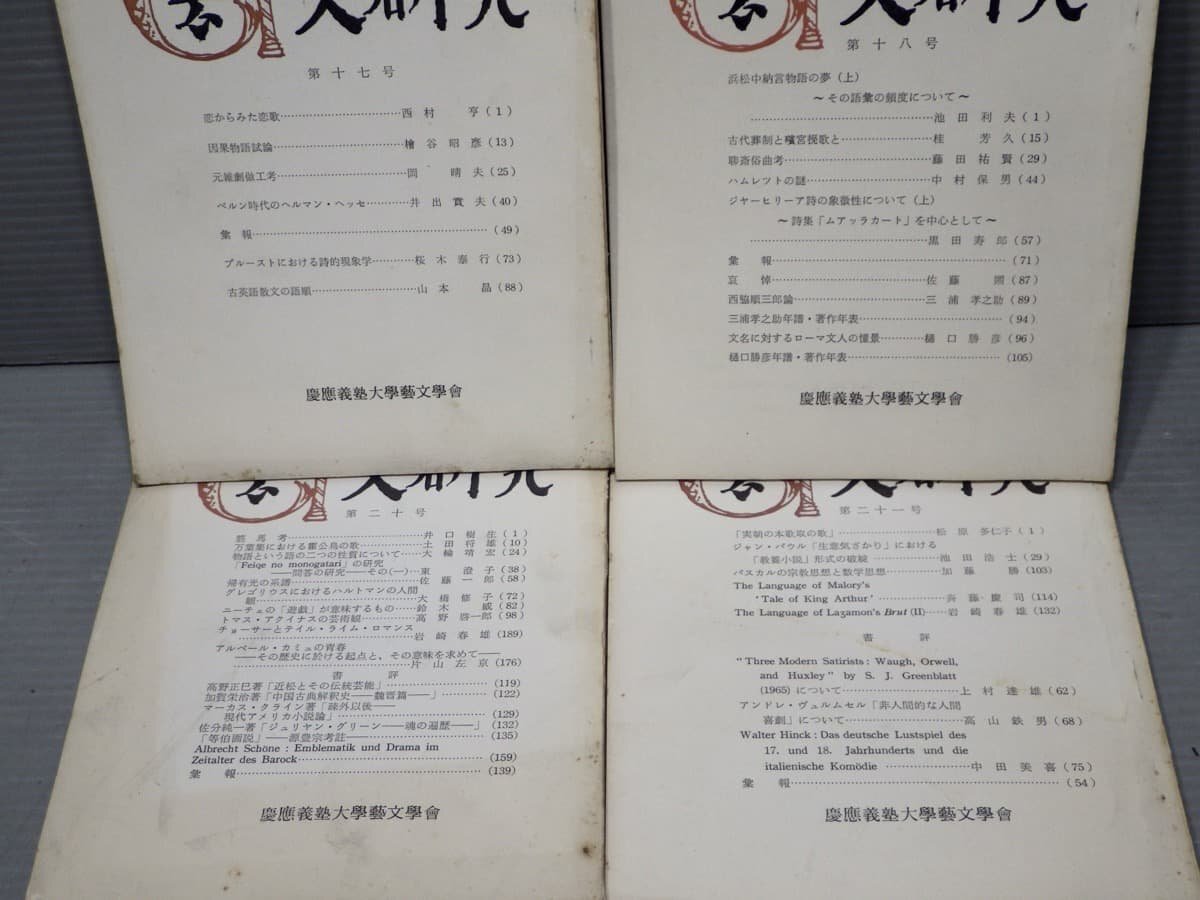 文研究
第十七号
恋からみた恋歌……西村 亨(1)
因果物語試論……檜谷昭彦(13)
元雑劇做工考……岡 晴夫(25)
ベルン時代のヘルマン・ヘッセ……井出賁夫(40)
彙報……(49)
プルーストにおける詩的現象学……桜木泰行(73)
古英語散文の語順……山本 晶(88)
慶應義塾大學藝文學會
文研究
第十八号
浜松中納言物語の夢(上)
~その語彙の頻度について~
……池田利夫(1)
古代葬制と殯宮挽歌と……桂 芳久(15)
聊斎俗曲考……藤田祐賢(29)
ハムレツトの謎……中村保男(44)
ジャーヒリーア詩の象徴性について(上)
~詩集「ムアッラカート」を中心として~
……黒田寿郎(57)
彙報……(71)
哀悼……佐藤 朔(87)
西脇順三郎論……三浦孝之助(89)
三浦孝之助年譜・著作年表……(94)
文名に対するローマ文人の憧景……樋口勝彦(96)
樋口勝彦年譜・著作年表……(105)
慶應義塾大學藝文學會
文研究
第二十号
馬考……井口樹生(1)
万葉集における霍公鳥の歌……土田将雄(10)
物語という語の二つの性質について……大輪靖宏(24)
「Feiqe no monogatari」の研究
——問答の研究——その(一)…東 澄子(38)
帰有光の系譜……佐藤一郎(58)
グレゴリウスにおけるハルトマンの人間
観……大橋修子(72)
ニーチェの「遊戯」が意味するもの……鈴木 威(82)
トマス・アクイナスの芸術観……高野啓一郎(98)
チョーサーとテイル・ライム・ロマンス
……岩崎春雄(189)
アルベール・カミュの青春
——その歴史に於ける起点と、その意味を求めて——
……片山左京(176)
書評
高野正巳著「近松とその伝統芸能」……(119)
加賀栄治著「中国古典解釈史——魏晋篇——」……(122)
マーカス・クライン著「疎外以後——
現代アメリカ小説論」……(129)
佐分純一著「ジュリヤン・グリーン——魂の遍歴——」(132)
「等伯画説」——源豊宗考註——……(135)
Albrecht Schöne : Emblematik und Drama im
Zeitalter des Barock……(159)
彙報……(139)
慶應義塾大學藝文學會
文研究
第二十一号
「実朝の本歌取の歌」……松原多仁子(1)
ジャン・パウル「生意気ざかり」における
「教養小説」形式の破綻……池田浩士(29)
パスカルの宗教思想と数学思想……加藤 勝(103)
The Language of Malory's
'Tale of King Arthur'……斉藤慶司(114)
The Language of Laȝamon's Brut (II)……岩崎春雄(132)
書評
"Three Modern Satirists : Waugh, Orwell,
and Huxley" by S. J. Greenblatt
(1965) について……上村達雄(62)
アンドレ・ヴュルムセル「非人間的な人間
喜劇」について……高山鉄男(68)
Walter Hinck : Das deutsche Lustspiel des
17. und 18. Jahrhunderts und die
italienische Komödie……中田美喜(75)
彙報……(54)
慶應義塾大學藝文學會